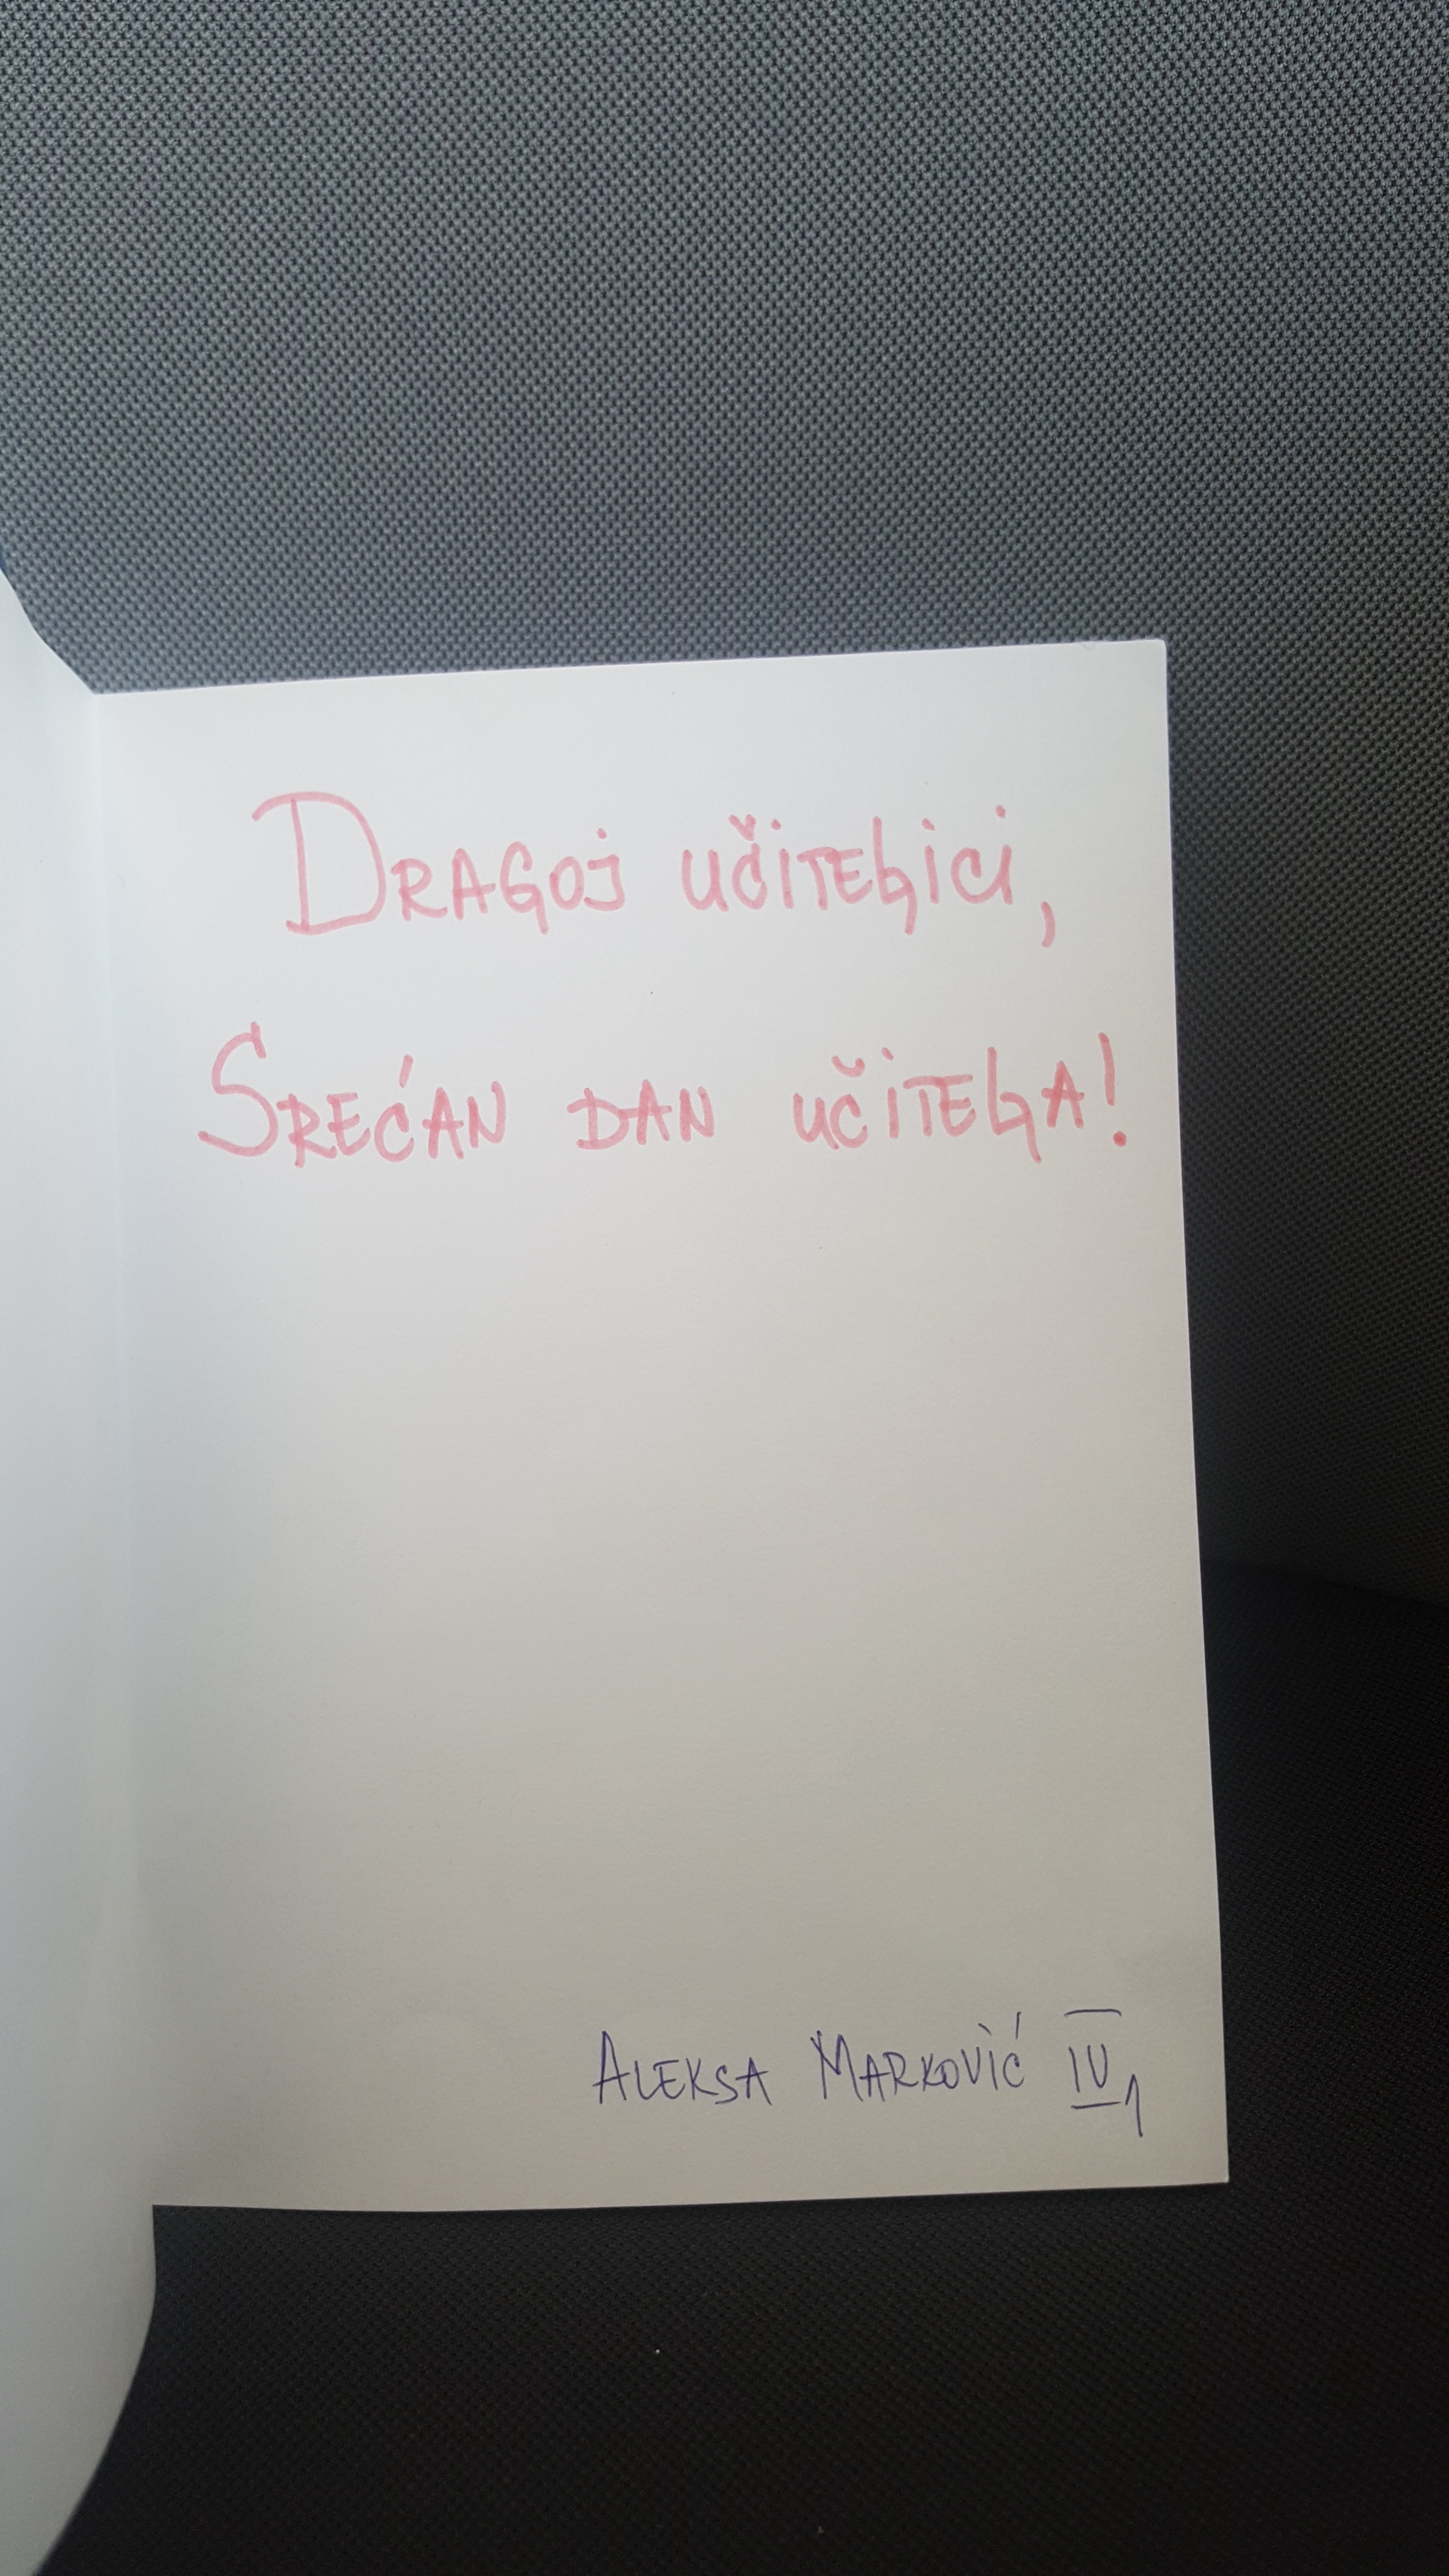 Dragoj učiteljici,
Srećan dan učitelja!
Aleksa Marković IV1